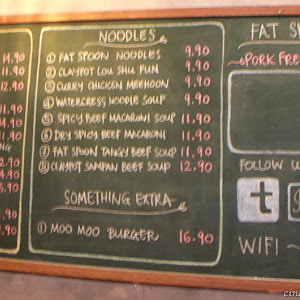 14.90
11.90
12.90
11.90
14.90
11.90
NOODLES
① FAT SPOON NOODLES 9.90
② CLAYPOT LOU SHU FUN 9.90
③ CURRY CHICKEN MEEHOON 9.90
④ WATERCRESS NOODLE SOUP 9.90
⑤ SPICY BEEF MACARONI SOUP 11.90
⑥ DRY SPICY BEEF MACARONI 11.90
⑦ FAT SPOON TANGY BEEF SOUP 11.90
⑧ CLAYPOT SAMPAN BEEF SOUP 12.90
SOMETHING EXTRA
① MOO MOO BURGER 16.90
FAT
PORK FRE
FOLLOW
t
WIFI ~